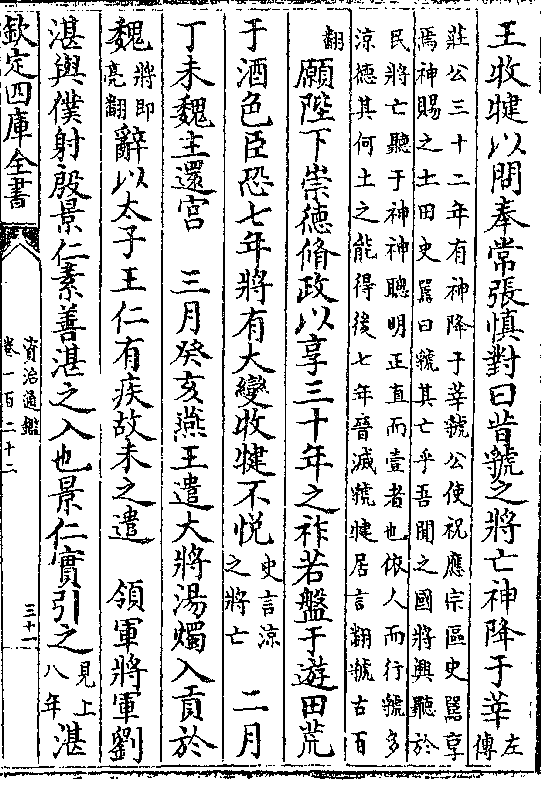 王收犍以問奉常張慎對曰昔虢之將亡神降于莘左傳
莊公三十二年有神降于莘虢公使祝應宗區史嚚享
焉神賜之土田史嚚曰虢其亡乎吾聞之國將興聽於
民將亡聽于神神聰明正直而壹者也依人而行虢多
涼德其何土之能得後七年晉滅虢犍居言翻虢古百
翻願陛下崇德脩政以享三十年之祚若盤于遊田荒
于酒色臣恐七年將有大變收犍不悦史言涼之將亡 二月
丁未魏主還宮 三月癸亥燕王遣大將湯燭入貢於
魏將即亮翻辭以太子王仁有疾故未之遣 領軍將軍劉
湛與僕射殷景仁素善湛之入也景仁實引之見上八年湛
欽定四庫全書
資治通鑑
卷一百二十二
三十一